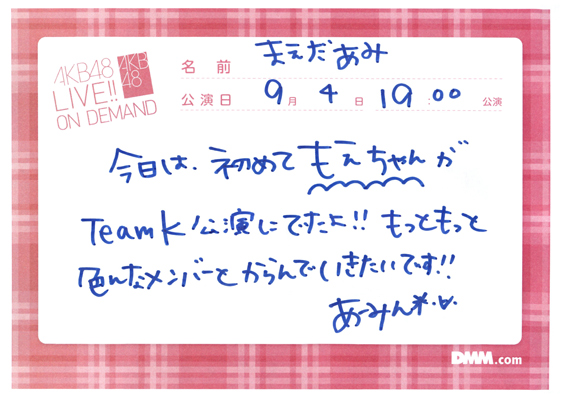 AKB48
LIVE!!
ON DEMAND
AKB
48
名前 まえだあみ
公演日 9月4日 19:00 公演
今日は、初めてもえちゃんが
TeamK公演にでたよ!! もっともっと
色んなメンバーとからんでいきたいです!!
あーみん
DMM.com